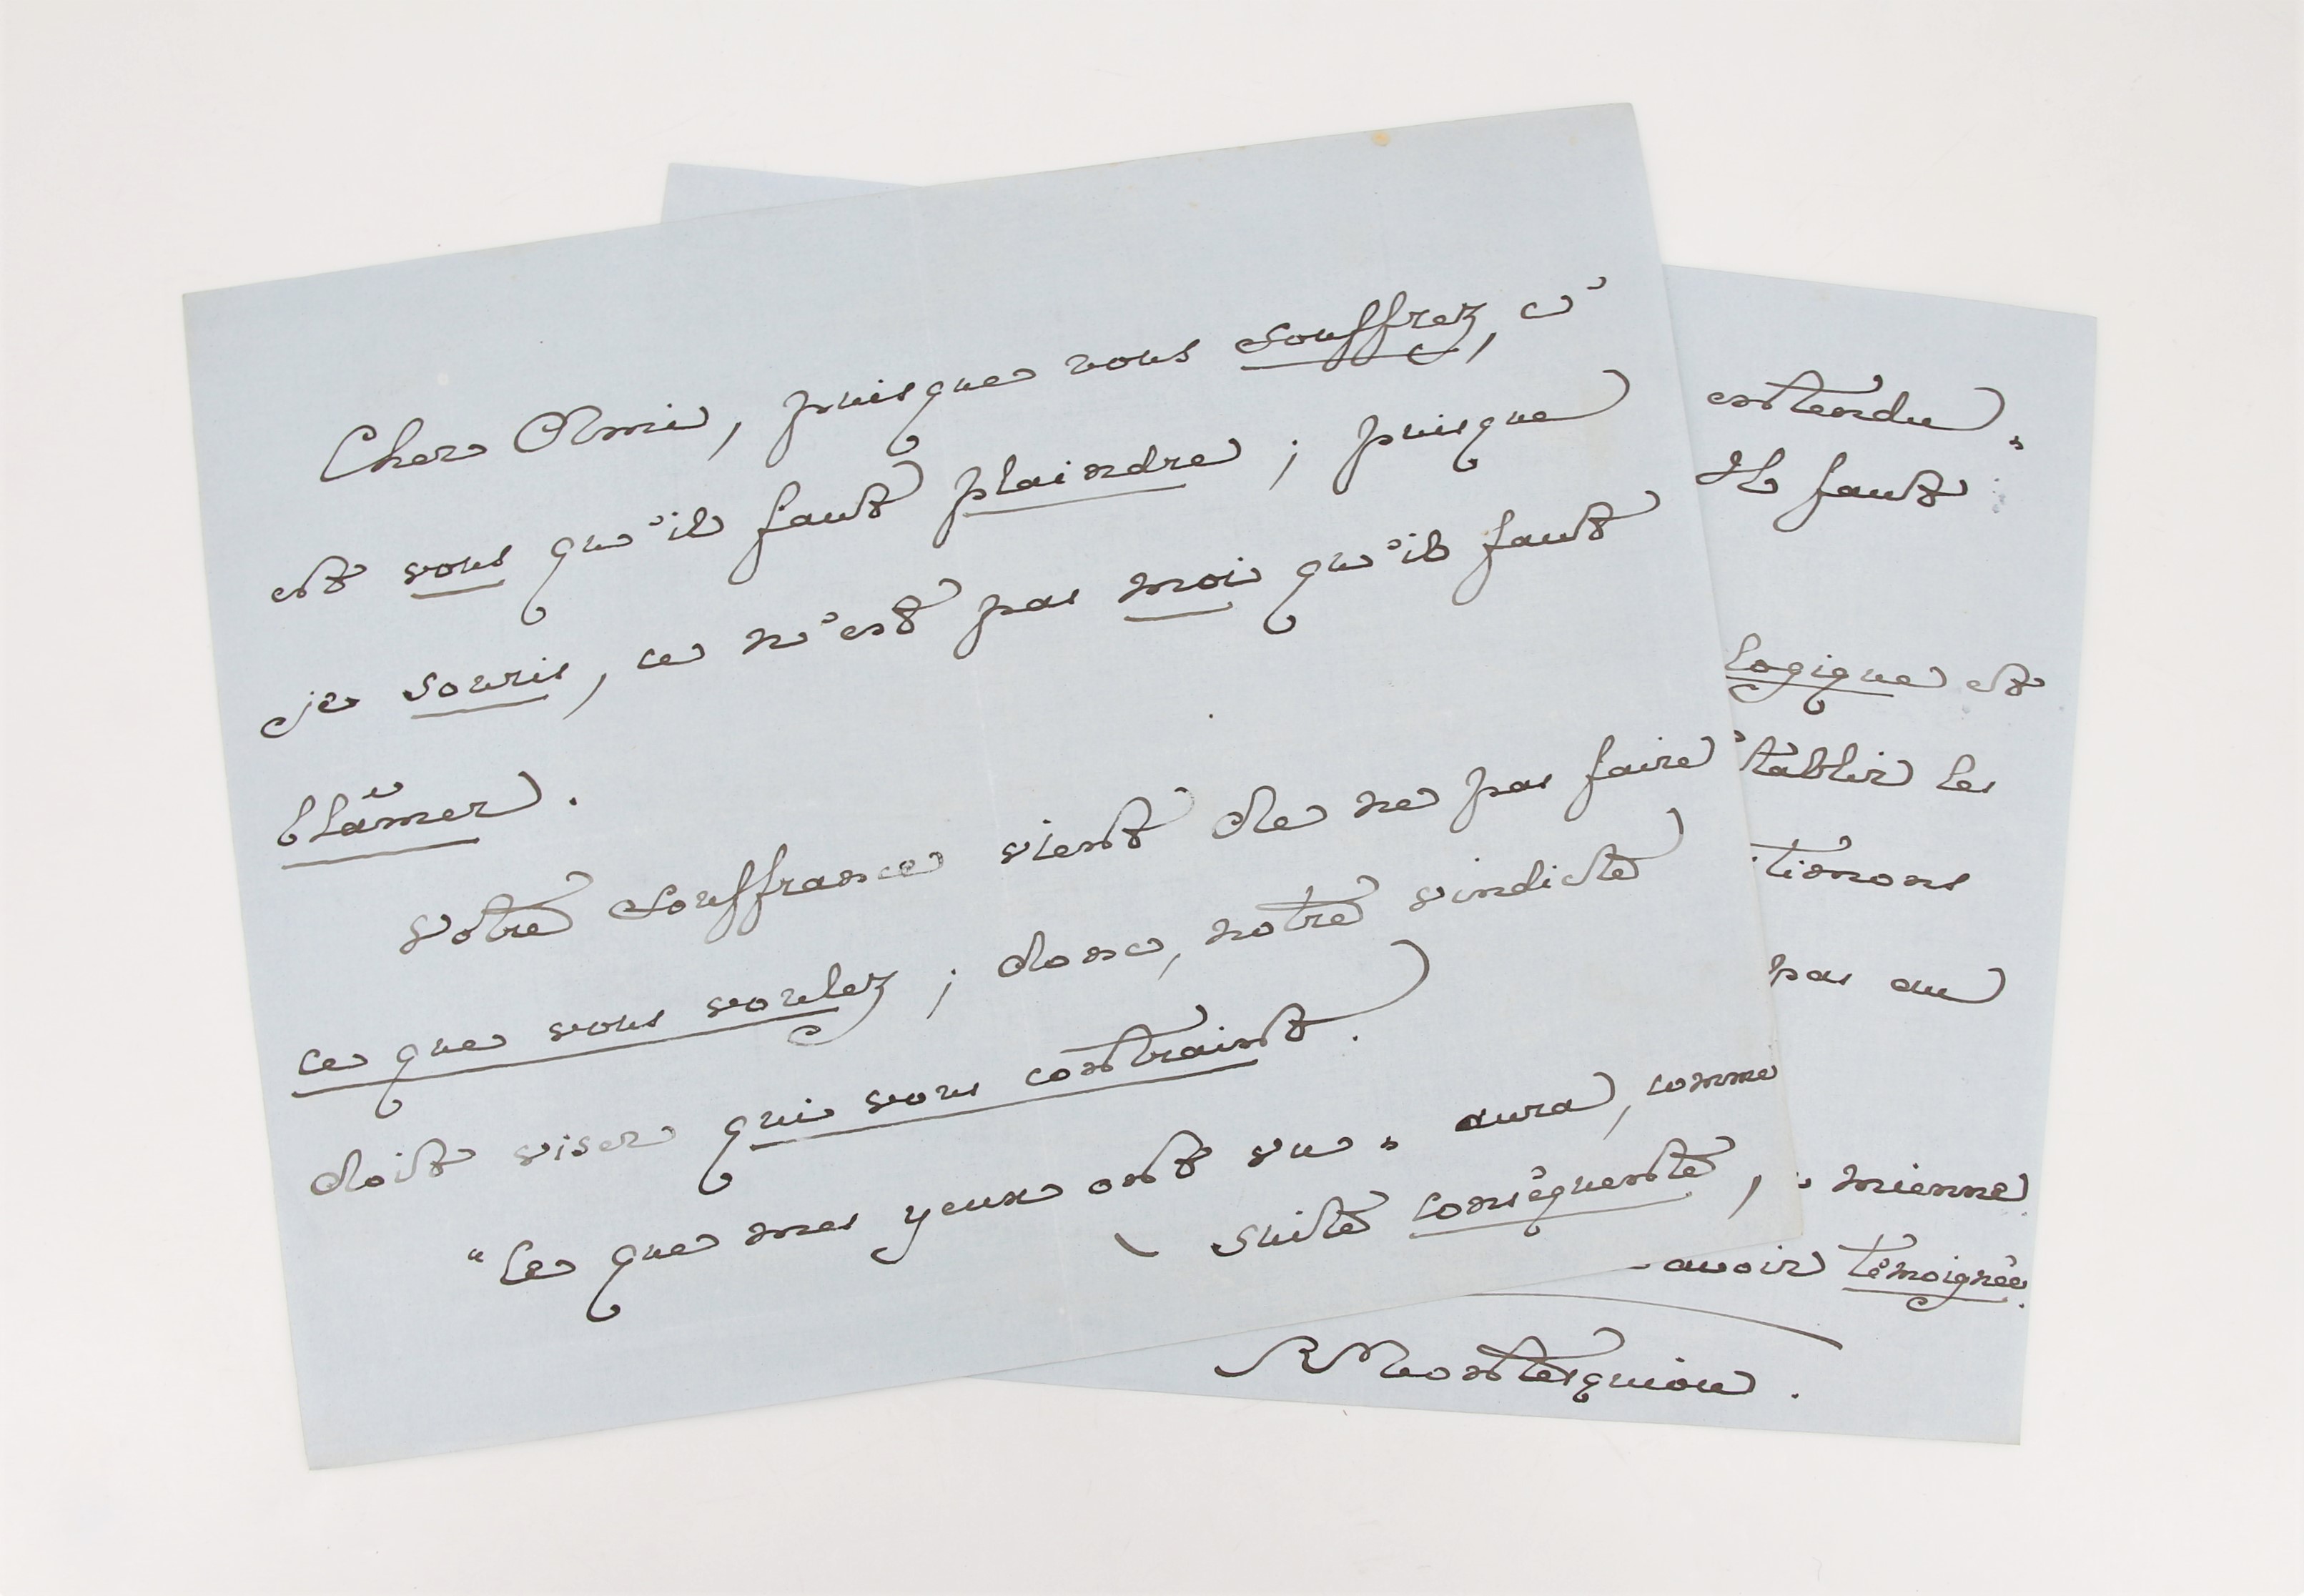 Cher Ami, puisque vous souffrez, c'
est vous qu'il faut plaindre ; puisque
je souris, ce n'est pas moi qu'il faut
blâmer.
Votre souffrance vient de ne pas faire
ce que vous voulez ; donc, notre vindicte
doit viser qui vous contraint.
"Ce que mes yeux ont vu" aura, comme
suite conséquente,
entendu"
Il faut
logique et
établir les
tionons
pas au
mienne
avoir témoignée.
RMontesquiou.